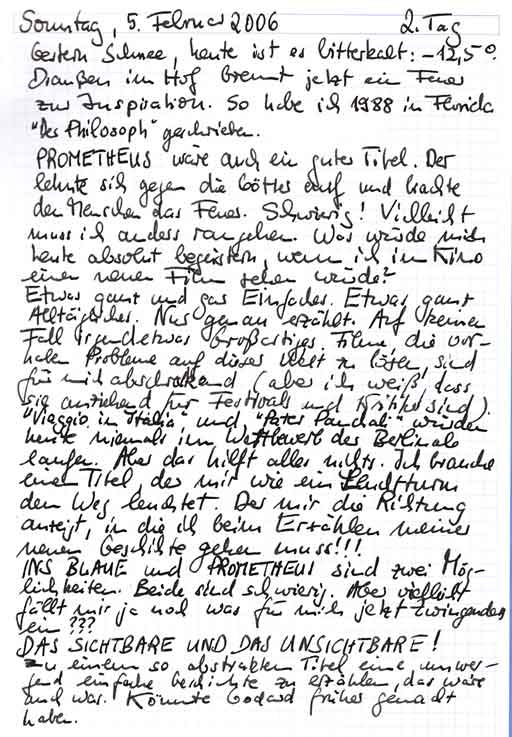 Sonntag, 5. Februar 2006 2. Tag
Gestern Schnee, heute ist es bitterkalt: -12,5°.
Draußen im Hof brennt jetzt ein Feuer
zur Inspiration. So habe ich 1988 in Florida
"Der Philosoph" geschrieben.
PROMETHEUS wäre auch ein guter Titel. Der
lehnte sich gegen die Götter auf und brachte
den Menschen das Feuer. Schwierig! Vielleicht
muss ich anders rangehen. Was würde mich
heute absolut begeistern, wenn ich im Kino
einen neuen Film sehen würde?
Etwas ganz und gar Einfaches. Etwas ganz
Alltägliches. Nur genau erzählt. Auf keinen
Fall irgendetwas Großartiges. Filme, die vor-
haben Probleme auf dieser Welt zu lösen, sind
für mich abschreckend (aber ich weiß, dass
sie anziehend für Festivals und Kritiker sind).
"Viaggio in Italia" und "Pater Panchali" würden
heute niemals im Wettbewerb der Berlinale
laufen. Aber das hilft alles nichts. Ich brauche
einen Titel, der mir wie ein Leuchtturm
den Weg leuchtet. Der mir die Richtung
anzeigt, in die ich beim Erzählen meiner
neuen Geschichte gehen muss!!!
INS BLAUE und PROMETHEUS sind zwei Mög-
lichkeiten. Beide sind schwierig. Aber vielleicht
fällt mir ja noch was für mich jetzt zwingenderes
ein???
DAS SICHTBARE UND DAS UNSICHTBARE!
Zu einem so abstrakten Titel eine umwer-
fend einfache Geschichte zu erzählen, das wäre
auch was. Könnte Godard früher gemacht
haben.